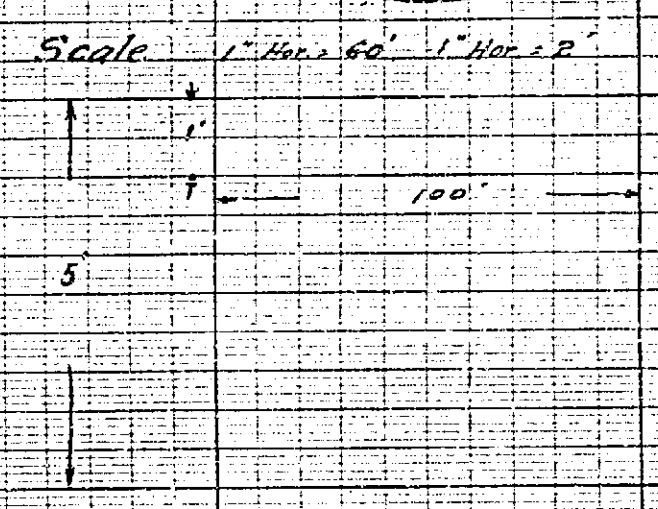 Scale 1" Hor. = 60' 1" Hor. = 2'
1'
100'
5'